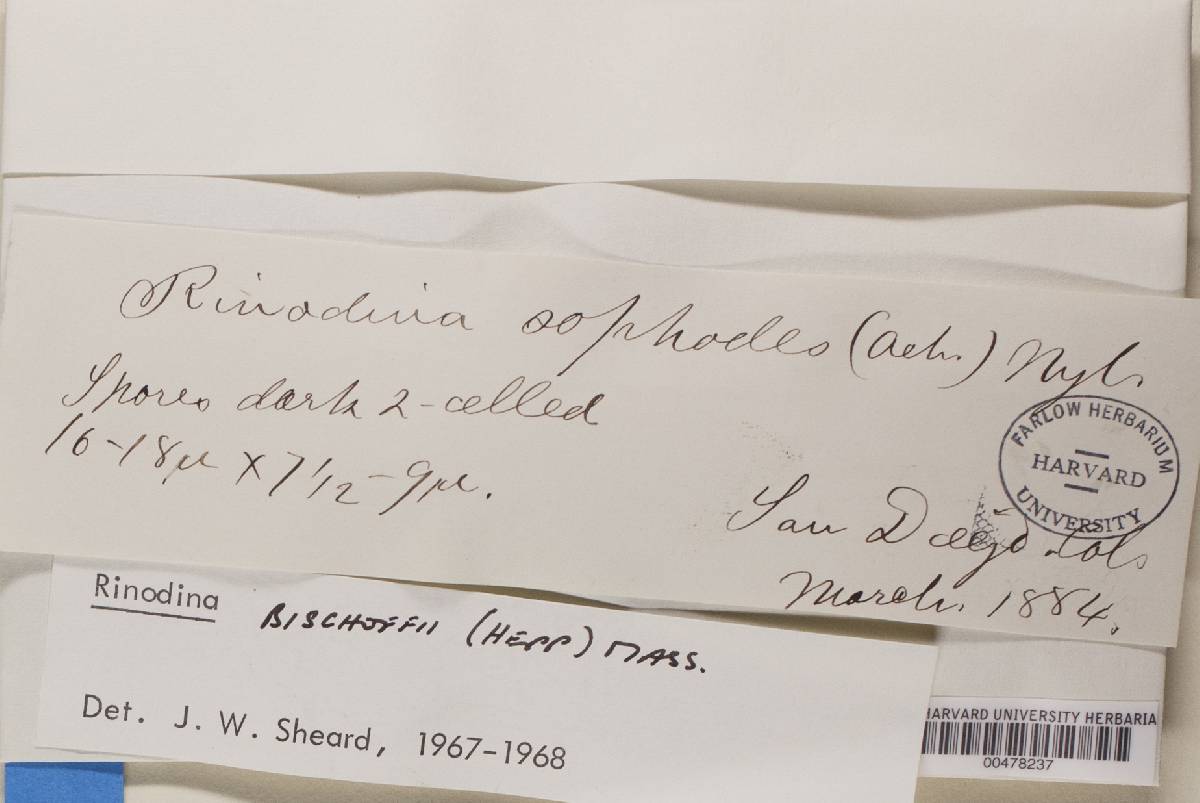 Rinodina sophodes (Ach.) Nyl.
Spores dark 2-celled
16-18µ X 7 1/2-9µ.
FARLOW HERBARIUM
HARVARD
UNIVERSITY
San Diego
March. 1884.
Rinodina BISCHOFFII (HEPP) MASS.
Det. J. W. Sheard, 1967-1968
HARVARD UNIVERSITY HERBARIA
00478237